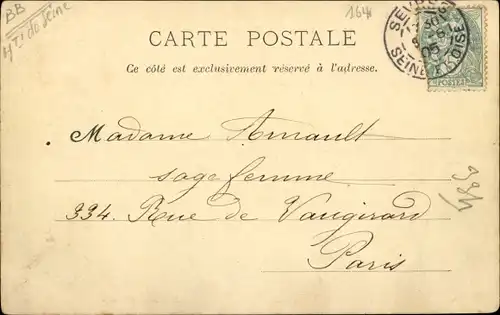 BB
Hts de Seine
164
CARTE POSTALE
Ce côté est exclusivement réservé à l'adresse.
SEVRES
05
SEINE ET OISE
POSTES
Madame Arnault
sage femme
334. Rue de Vaugirard
Paris